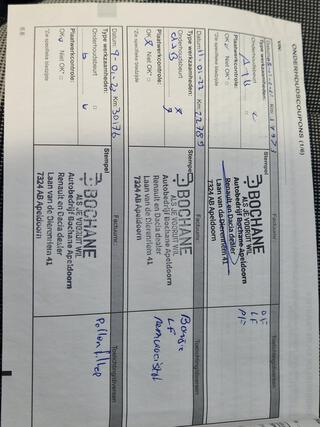 ONDERHOUDSCOUPONS (1/6)
VIN:
Datum:
Km:
Factuurnr.:
Toelichting/diversen
Type werkzaamheden:
Stempel
Onderhoudsbeurt
Plaatwerkcontrole:
OK Niet OK*
*Zie specifieke bladzijde
BOCHANE
ALS JE VOORUIT WIL
Autobedrijf Bochane Apeldoorn
Renault en Dacia dealer
Laan van de Dierenriem 41
7324 AB Apeldoorn
LF
Datum: 11.01.22 Km:
Factuurnr.:
Toelichting/diversen
Type werkzaamheden:
Stempel
Onderhoudsbeurt
Plaatwerkcontrole:
OK Niet OK*
*Zie specifieke bladzijde
BOCHANE
ALS JE VOORUIT WIL
Autobedrijf Bochane Apeldoorn
Renault en Dacia dealer
Laan van de Dierenriem 41
7324 AB Apeldoorn
LF
Remvloeistof
Datum: Km: 30176
Factuurnr.:
Toelichting/diversen
Type werkzaamheden:
Stempel
Onderhoudsbeurt
Plaatwerkcontrole:
OK Niet OK*
*Zie specifieke bladzijde
BOCHANE
ALS JE VOORUIT WIL
Autobedrijf Bochane Apeldoorn
Renault en Dacia dealer
Laan van de Dierenriem 41
7324 AB Apeldoorn
Pollenfilter